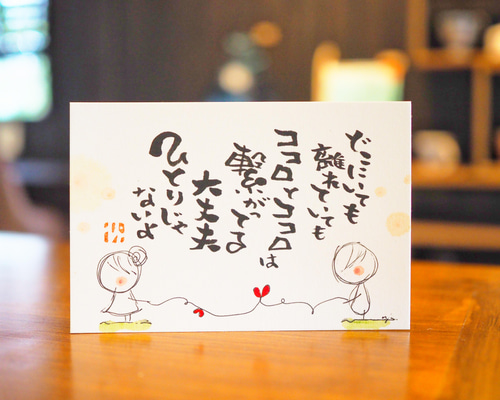 どこにいても
離れていても
ココロとココロは
繋がってる
大丈夫
ひとりじゃ
ないよ